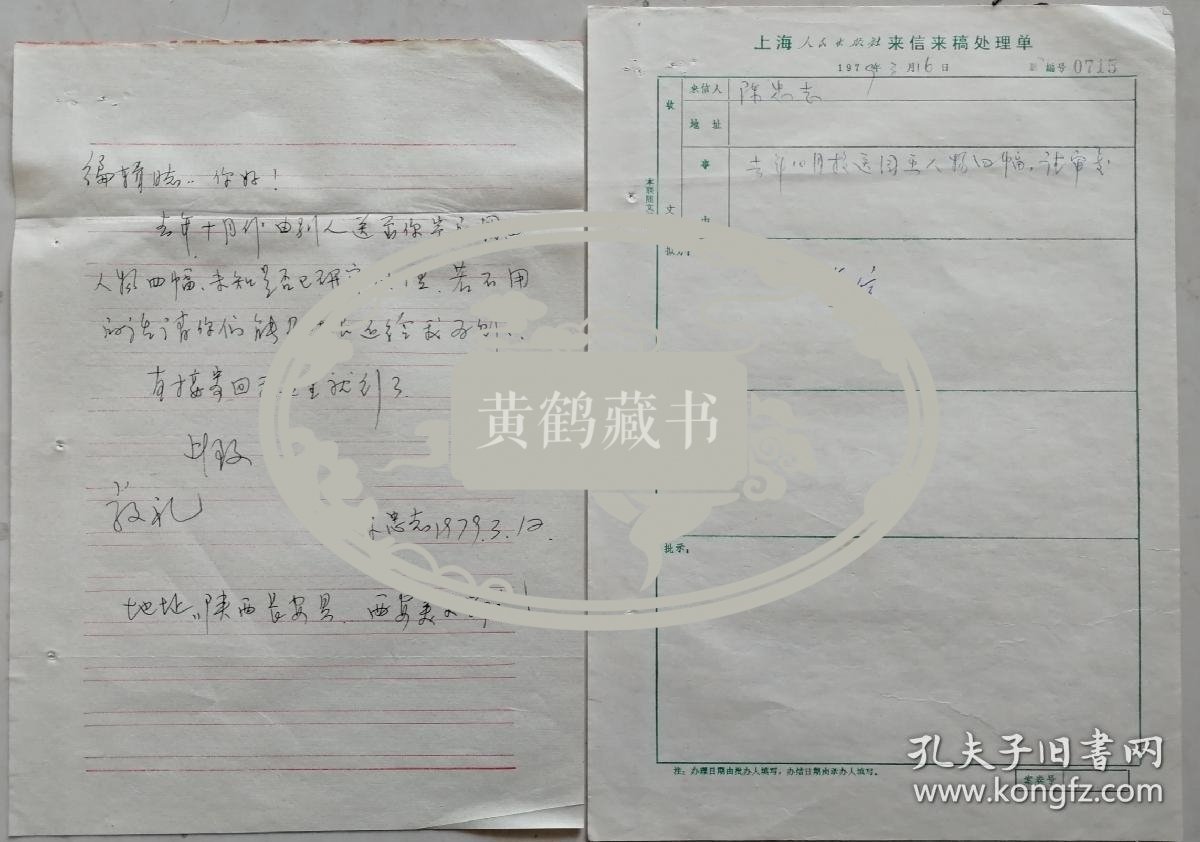 编辑同志：你好！
去年十月份由别人送至你
人物四幅、未知是否已研究 若不用
的话请你们能 还给我
直接寄回 就行了
此致
敬礼
忠志1979.3.12.
地址：陕西长安县、西安美
上海人民出版社来信来稿处理单
1979年3月16日
编号 0715
收
文
来信人
陈忠志
地址
事
由
去年10月投送国画人物四幅。请审处
拟办：
批示：
注：办理日期由批办人填写，办结日期由承办人填写。
室卷号
黄鹤藏书
孔夫子旧书网
www.kongfz.com